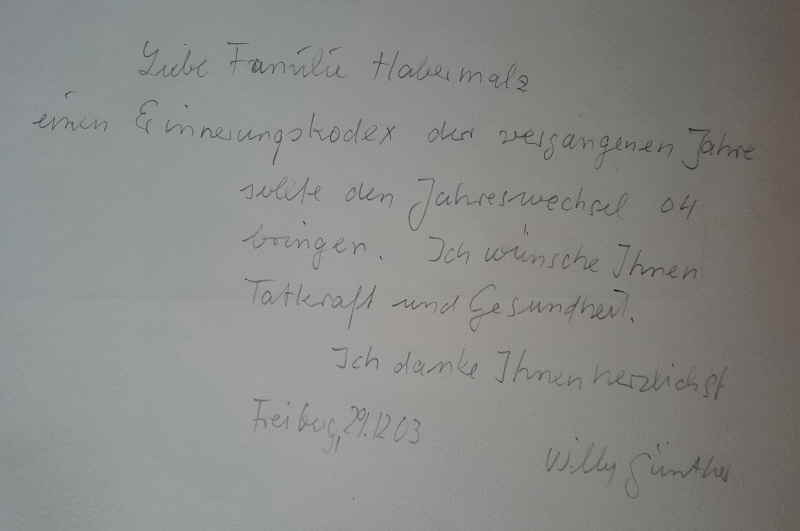 Liebe Familie Habermalz
einen Erinnerungskodex der vergangenen Jahre
sollte den Jahreswechsel 04
bringen. Ich wünsche Ihnen
Tatkraft und Gesundheit.
Ich danke Ihnen herzlichst
Freiburg, 29.12 03
Willy Günther